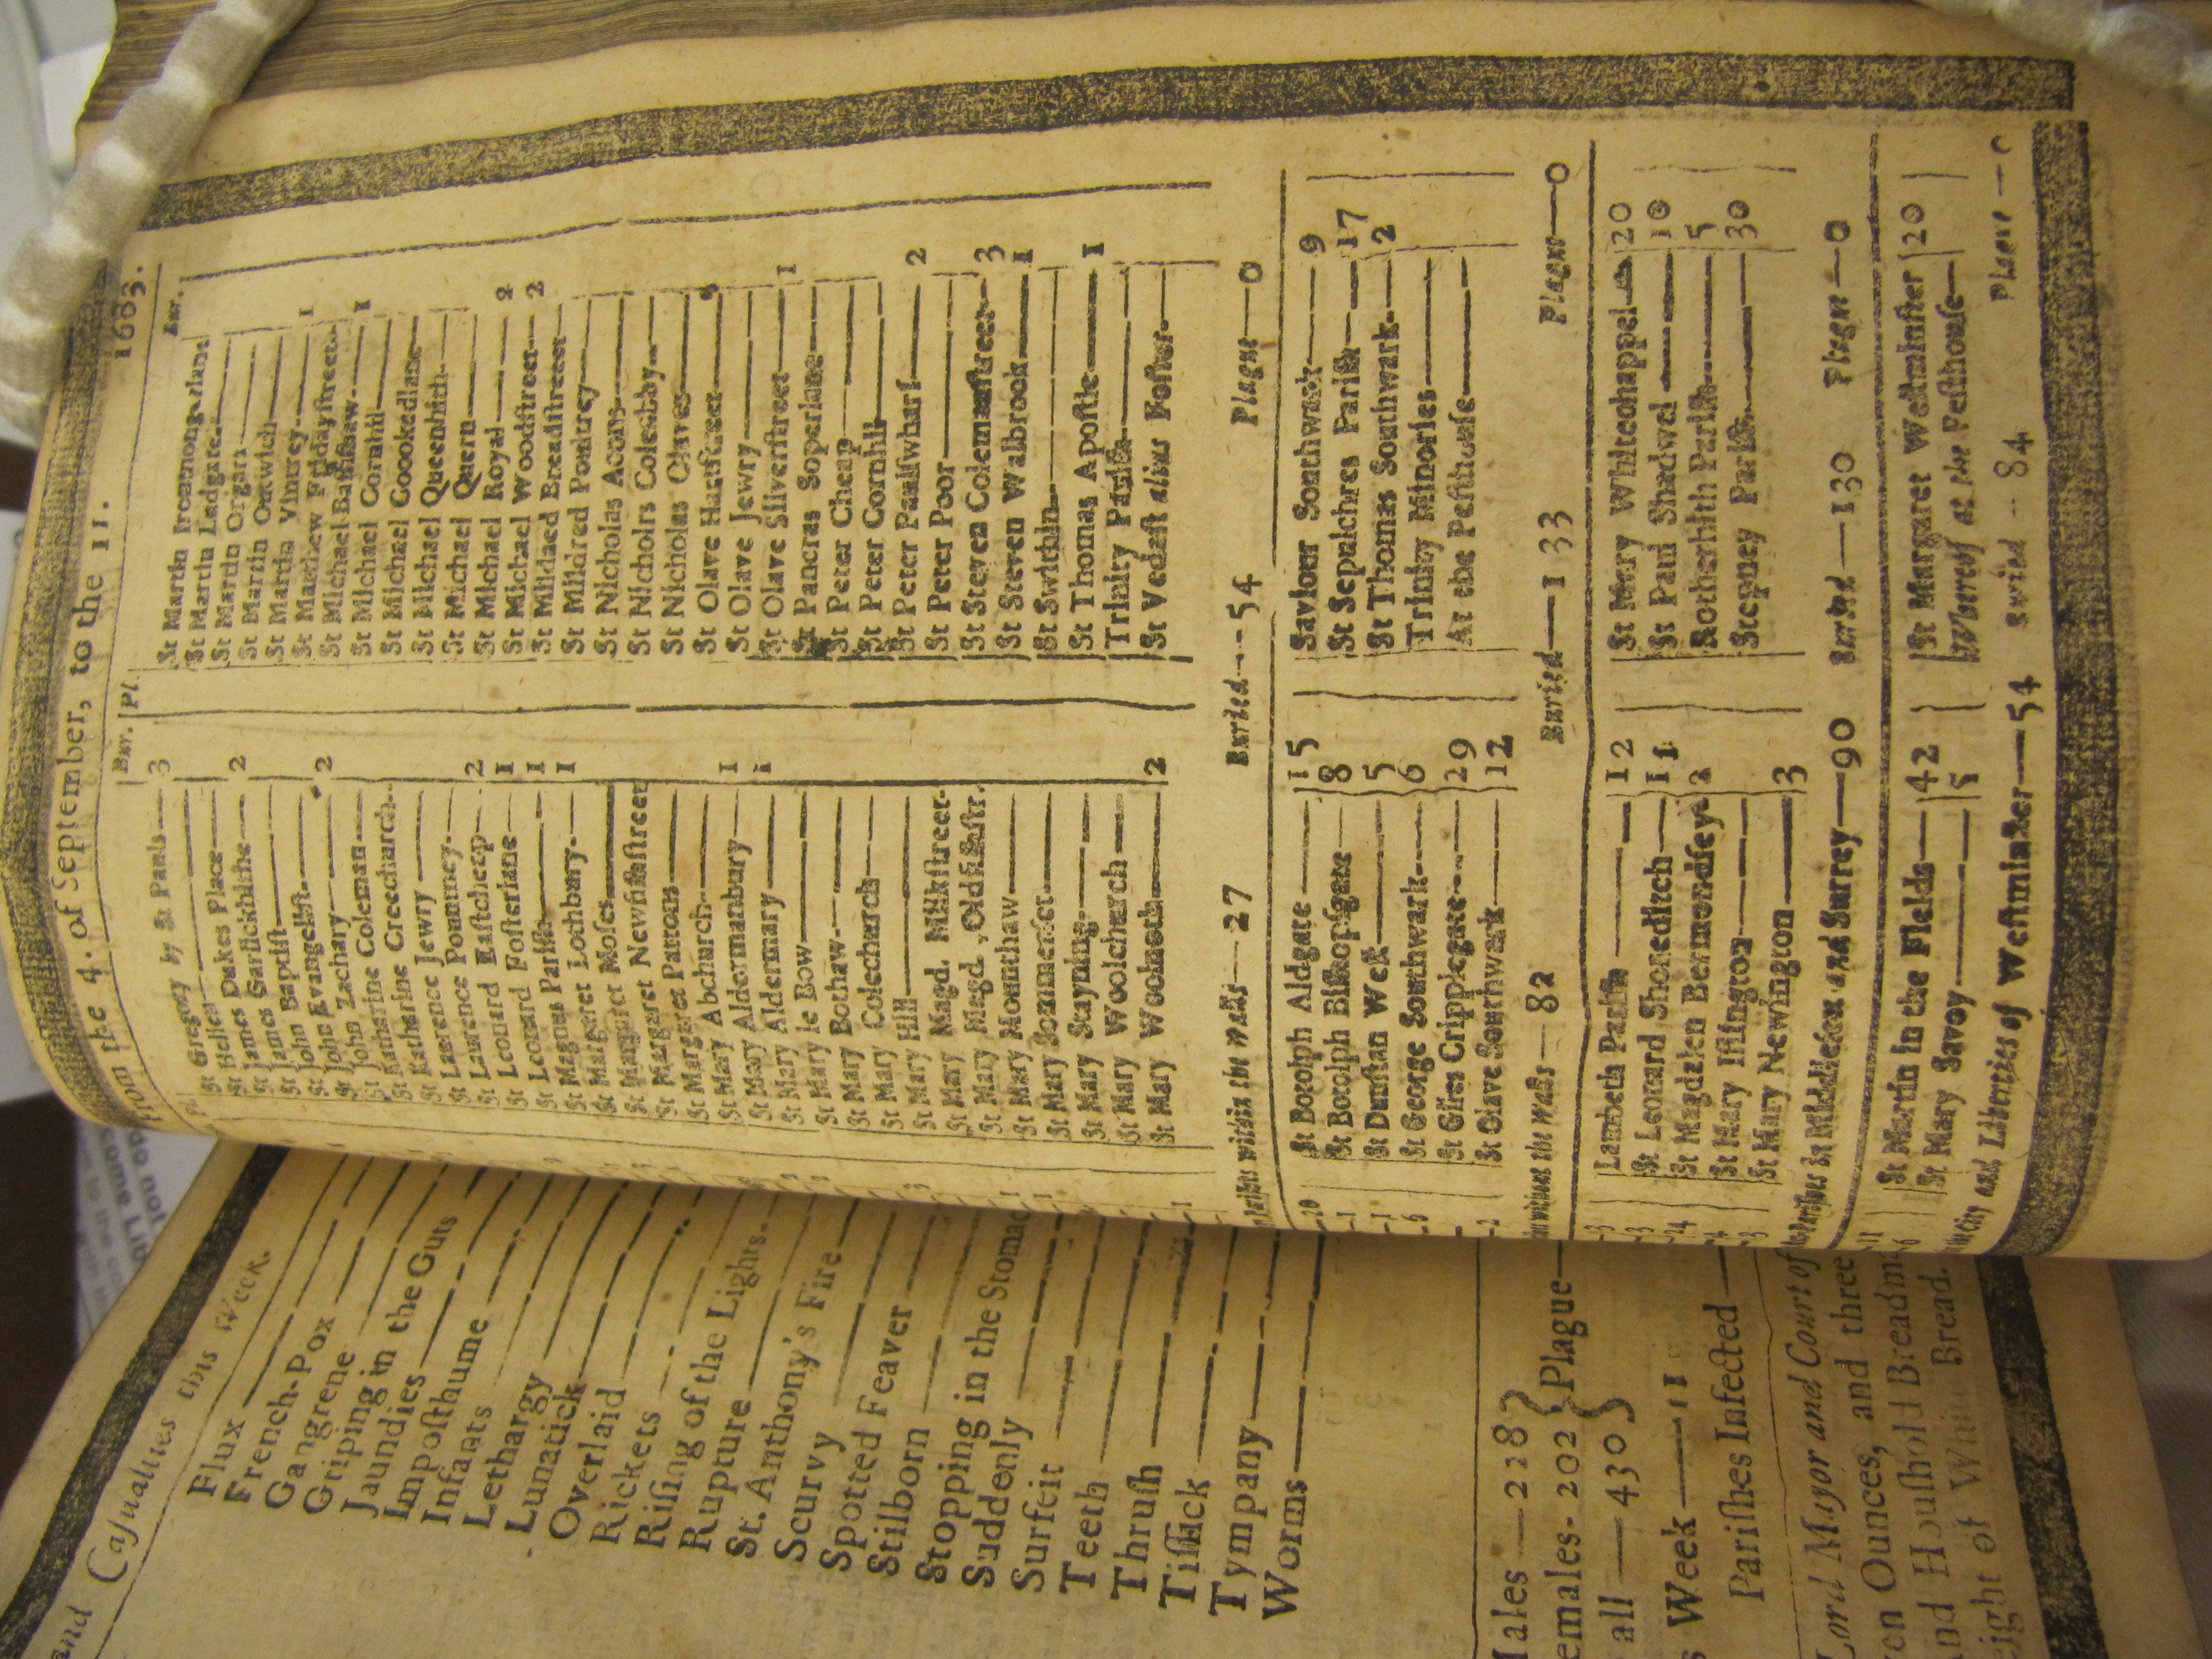 From the 4. of September, to the 11. 1683.
Bur. Pl.
St Gregory by St Pauls 3
St Helen
St James Dukes Place
St James Garlickhithe 2
St James Baptist
St John Evangelist
St John Zachary 2
St Katharine Coleman
St Katharine Creechurch
St Lawrence Jewry
St Laurence Pountney
St Leonard Eastcheep 2
St Leonard Fosterlane 1
St Magnus Parish 1
St Margaret Lothbury 1
St Margaret Moses
St Margaret Newfishstreet
St Margaret Pattons
St Mary Abchurch
St Mary Aldermanbury 1
St Mary Aldermary 1
St Mary le Bow
St Mary Bothaw
St Mary Colechurch
St Mary Hill
St Mary Magd. Milkstreet
St Mary Magd. Oldfishstr.
St Mary Mounthaw
St Mary Sommerset
St Mary Stayning
St Mary Woolchurch
St Mary Woolnoth 2
Bur.
St Martin Iremongerlane
St Martin Ludgate
St Martin Orgars
St Martin Outwich
St Martin Vintrey 1
St Matthew Fridaystreet
St Michael Bassishaw 1
St Michael Cornhil
St Michael Coookedlane
St Michael Queenhith
St Michael Quern
St Michael Royal 2
St Michael Woodstreet 2
St Mildred Breadstreet
St Mildred Poultry
St Nicholas Acons
St Nichols Coleabby
St Nicholas Olaves
St Olave Hartstreet
St Olave Jewry
St Olave Silverstreet 1
St Pancras Soperlane
St Peter Cheap
St Peter Cornhil
St Peter Paulswharf 2
St Peter Poor
St Steven Colemanstreet 3
St Steven Walbrook 1
St Swithin
St Thomas Apostle 1
Trinity Parish
St Vedast alias Foster
within the walls 27 Buried 54 Plague 0
St Botolph Aldgate 15
St Botolph Bishopsgate 8
St Dunstan West 5
St George Southwark 6
St Giles Cripplegate 29
St Olave Southwark 12
Saviour Southwark 9
St Sepulchres Parish 17
St Thomas Southwark 2
Trinity Minories
At the Pesthouse
without the Walls 82 Buried 133 Plague 0
Lambeth Parish 12
St Leonard Shoreditch 11
St Magdalen Bermondsey 2
St Mary Islington
St Mary Newington 3
St Mary Whitechappel 20
St Paul Shadwel 10
Rotherhith Parish 5
Stepney Parish 30
in Middlesex and Surrey 90 Buried 130 Plague 0
St Martin in the Fields 42
St Mary Savoy 5
St Margaret Westminster 20
Whereof at the Pesthouse
City and Liberties of Westminster 54 Buried 84 Plague
and Casualties this Week.
Flux
French-Pox
Gangrene
Griping in the Guts
Jaundies
Imposthume
Infants
Lethargy
Lunatick
Overlaid
Rickets
Rising of the Lights
Rupture
St. Anthony's Fire
Scurvy
Spotted Feaver
Stilborn
Stopping in the Stomac
Suddenly
Surfeit
Teeth
Thrush
Tissick
Tympany
Worms
Males 228
emales 202 Plague
all 430
Week 11
Parishes Infected
Lord Mayor and Court of
Ounces, and three
Houshold Bread
eight of Whi Bread.